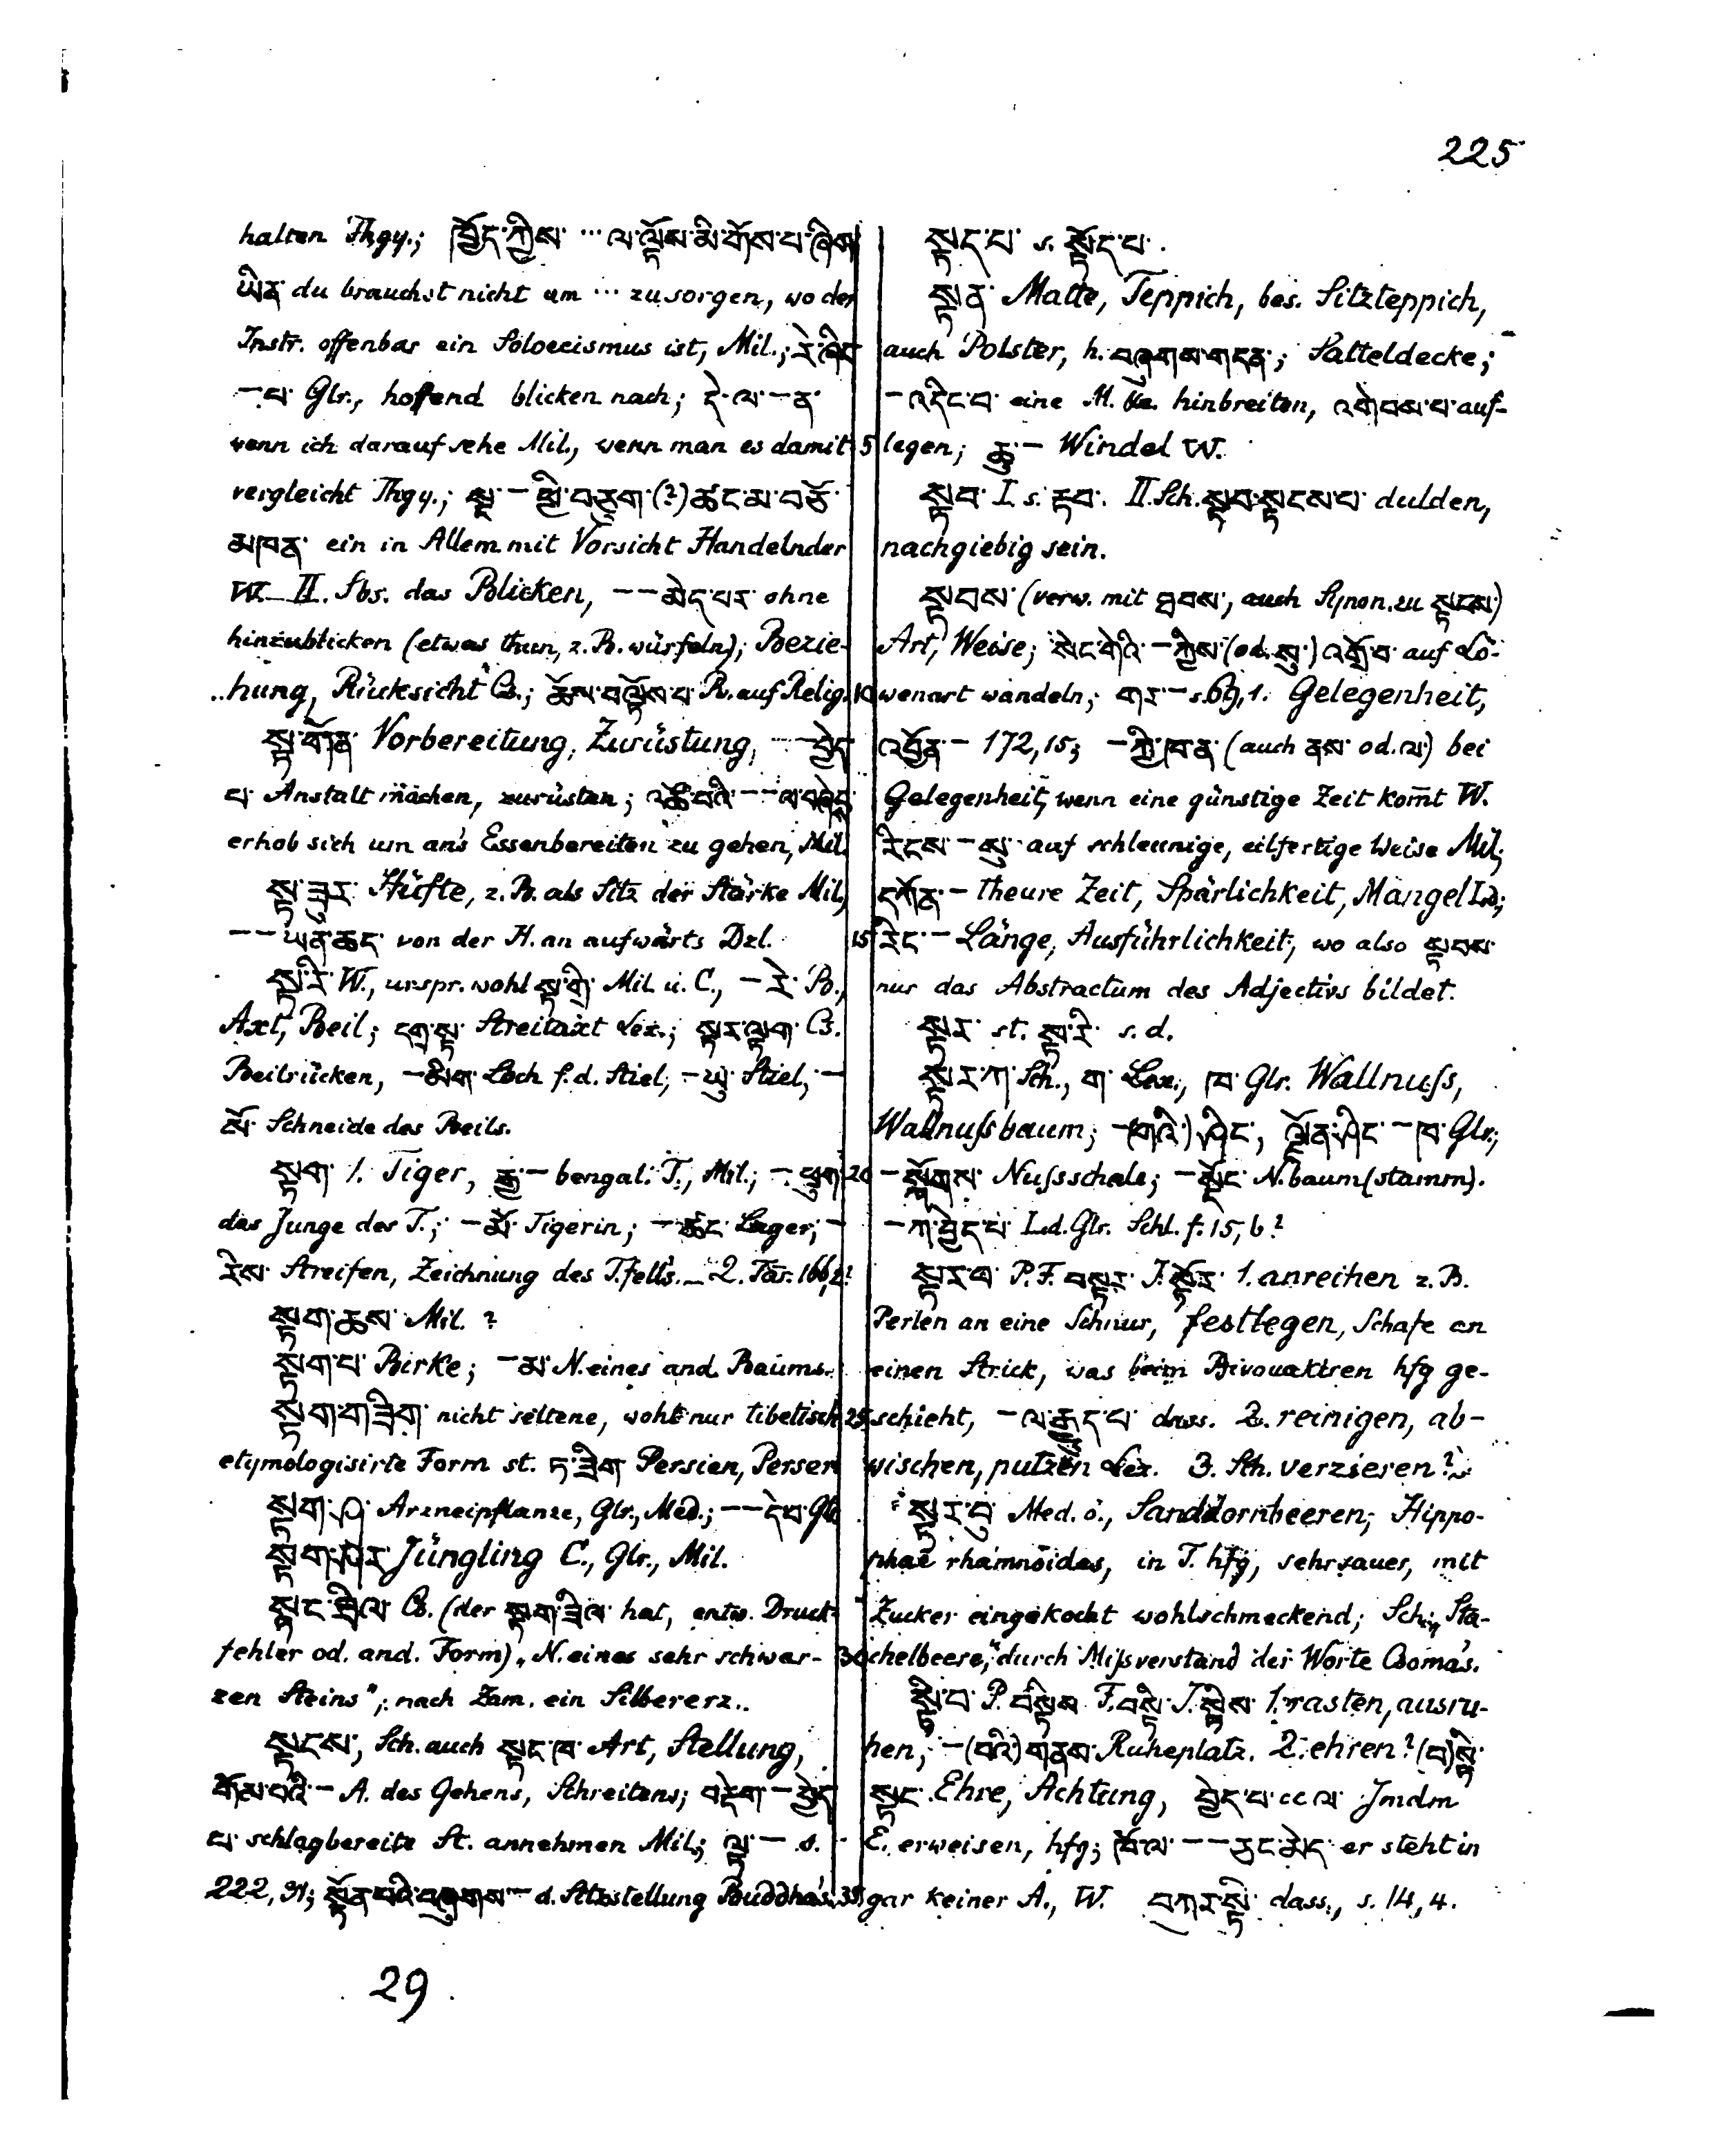 225
halten Thgy.; ཁྱོད་ཀྱིས་ ... ལ་ལྟོས་མི་དགོས་པ་ཞིག
ཡིན་ du brauchst nicht um ... zu sorgen, wo der
Instr. offenbar ein Soloecismus ist, Mil.; རེ་ཞིང
–པ་ Glr., hoffend blicken nach; དེ་ལ་–ན་
wenn ich darauf sehe Mil., wenn man es damit
vergleicht Thgy.; –ཕྱི་ (?) ཚང་མ་བཅོ་
མཁན་ ein in Allem mit Vorsicht Handelnder
W. II. Sbs. das Blicken, ––མེད་པར་ ohne
hinzublicken (etwas thun, z. B. würfeln); Bezie-
hung, Rücksicht Cs.; ཆོས་བལྟོས་པ་ B. auf Relig.
སྟ་གོན་ Vorbereitung, Zurüstung, ––བྱེད
པ་ Anstalt machen, zurüsten; འཚོ་བའི་––ལ་བཞེང
erhob sich um an's Essenbereiten zu gehen, Mil.
སྟ་ཟུར་ Hüfte, z. B. als Sitz der Stärke Mil.,
––ཡན་ཆད་ von der H. an aufwärts Dzl.
སྟ་རི་ W., urspr. wohl སྟ་གྲི་ Mil. u. C., –རེ་ B.,
Axt, Beil; དགྲ་སྟ་ Streitaxt Lex.; སྟར་ལྟག་ Cs.
Beilrücken, –མིག་ Loch f. d. Stiel, –ཡུ་ Stiel, –
སོ་ Schneide des Beils.
སྟག་ 1. Tiger, རྒྱ་– bengal. T., Mil.; –ཕྲུག་
das Junge des T.; –མོ་ Tigerin; –ཚང་ Lager, –
རིས་ Streifen, Zeichnung des T.fells. – 2. Tār. 166,2?
སྟག་ཆས་ Mil. ?
སྟག་པ་ Birke; –མ་ N. eines and. Baums.
སྟག་གཟིག་ nicht seltene, wohl nur tibetisch
etymologisirte Form st. ཏ་ཟིག་ Persien, Perser
སྟག་ཤ་ Arzneipflanze, Glr., Med.; ––དེབ་ Glr
སྟག་ཤར་ Jüngling C., Glr., Mil.
སྟང་ཟིལ་ Cs. (der སྟག་ཟིལ་ hat, entw. Druck-
fehler od. and. Form) „N. eines sehr schwar-
zen Steins“; nach Zam. ein Silbererz.
སྟངས་, Sch. auch སྟང་ཁ་ Art, Stellung,
གོམ་པའི་– A. des Gehens, Schreitens; བརྡེག་–བྱེད
པ་ schlagbereite St. annehmen Mil.; ལྟ་– s.
222, 91; སྟོན་པའི་བཞུགས་– d. Sitzstellung Buddha's.
29
སྟད་པ་ s. སྟོད་པ་.
སྟན་ Matte, Teppich, bes. Sitzteppich,
auch Polster, h. བཞུགས་གདན་; Satteldecke;
–འདིང་བ་ eine M. hinbreiten, འགེབས་པ་ auf-
5 legen; ཆུ་– Windel W.
སྟབ་ I. s. རྟབ་. II. Sch. སྟབ་སྟངས་པ་ dulden,
nachgiebig sein.
སྟབས་ (verw. mit ཐབས་, auch Synon. zu སྟངས་)
Art, Weise; སེང་གེའི་–ཀྱིས་ (od. སུ་) འགྲོ་བ་ auf Lö-
10 wenart wandeln; གར་– s. 69,1. Gelegenheit,
འབྱོན་– 172,15; –ཀྱི་ཁན་ (auch ནས་ od. ལ་) bei
Gelegenheit, wenn eine günstige Zeit kom̄t W.
རིངས་–སུ་ auf schleunige, eilfertige Weise Mil.;
དཀོན་– theure Zeit, Spärlichkeit, Mangel Ld.;
15 རིང་– Länge, Ausführlichkeit, wo also སྟབས་
nur das Abstractum des Adjectivs bildet.
སྟར་ st. སྟ་རི་ s. d.
སྟར་ཀ་ Sch., ག་ Lex., ཁ་ Glr. Wallnuſs,
Wallnuſsbaum; –(གའི་) ཤིང་, ལྗོན་ཤིང་–ཁ་ Glr.;
20 –སྐོགས་ Nuſsschale; –སྡོང་ N.baum (stamm).
–ཀ་བྱེད་པ་ Ld. Glr. Schl. f. 15, b?
སྟར་བ་ P. F. བསྟར་ J. སྟོར་ 1. anreihen z. B.
Perlen an eine Schnur, festlegen, Schafe an
einen Strick, was beim Bivouakiren hfg ge-
25 schieht, –ལ་རྒྱུད་པ་ dass. 2. reinigen, ab-
wischen, putzen Lex. 3. Sch. verzieren?
སྟར་བུ་ Med. ö., Sanddornbeeren, Hippo-
phaë rhamnoides, in T. hfg, sehr sauer, mit
Zucker eingekocht wohlschmeckend; Sch. „Sta-
30 chelbeere,“ durch Miſsverstand der Worte Csoma's.
སྟི་བ་ P. བསྟིས་ F. བསྟི་ J. སྟིས་ 1. rasten, ausru-
hen, –(བའི) གནས་ Ruheplatz. 2. ehren? (བ)སྟི་
སྟང་ Ehre, Achtung, བྱེད་པ་ cc ལ་ Jmdm
E. erweisen, hfg; ཁོ་ལ་––ཅང་མེད་ er steht in
35 gar keiner A., W. བཀར་སྟི་ dass., s. 14, 4.